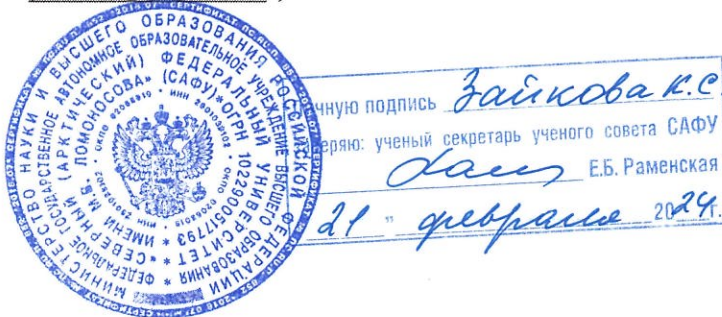 МИНИСТЕРСТВО НАУКИ И ВЫСШЕГО ОБРАЗОВАНИЯ РОССИЙСКОЙ ФЕДЕРАЦИИ
ФЕДЕРАЛЬНОЕ ГОСУДАРСТВЕННОЕ АВТОНОМНОЕ ОБРАЗОВАТЕЛЬНОЕ УЧРЕЖДЕНИЕ ВЫСШЕГО ОБРАЗОВАНИЯ
* «СЕВЕРНЫЙ (АРКТИЧЕСКИЙ) ФЕДЕРАЛЬНЫЙ УНИВЕРСИТЕТ
* ИМЕНИ М.В. ЛОМОНОСОВА» (САФУ) * ОГРН 1022900517793
чную подпись Зайкова К.С.
еряю: ученый секретарь ученого совета САФУ
Е.Б. Раменская
21 " февраля 2024г.